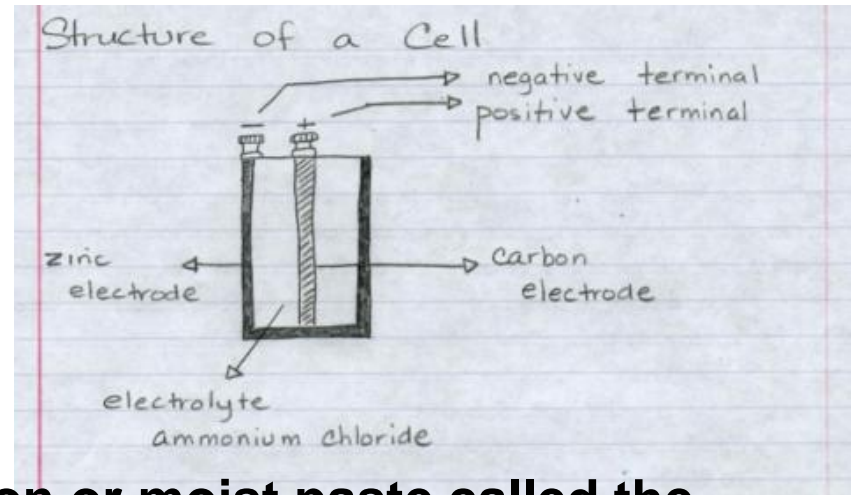 Structure of a Cell
negative terminal
positive terminal
− +
zinc
electrode
carbon
electrode
electrolyte
ammonium chloride
on or moist paste called the